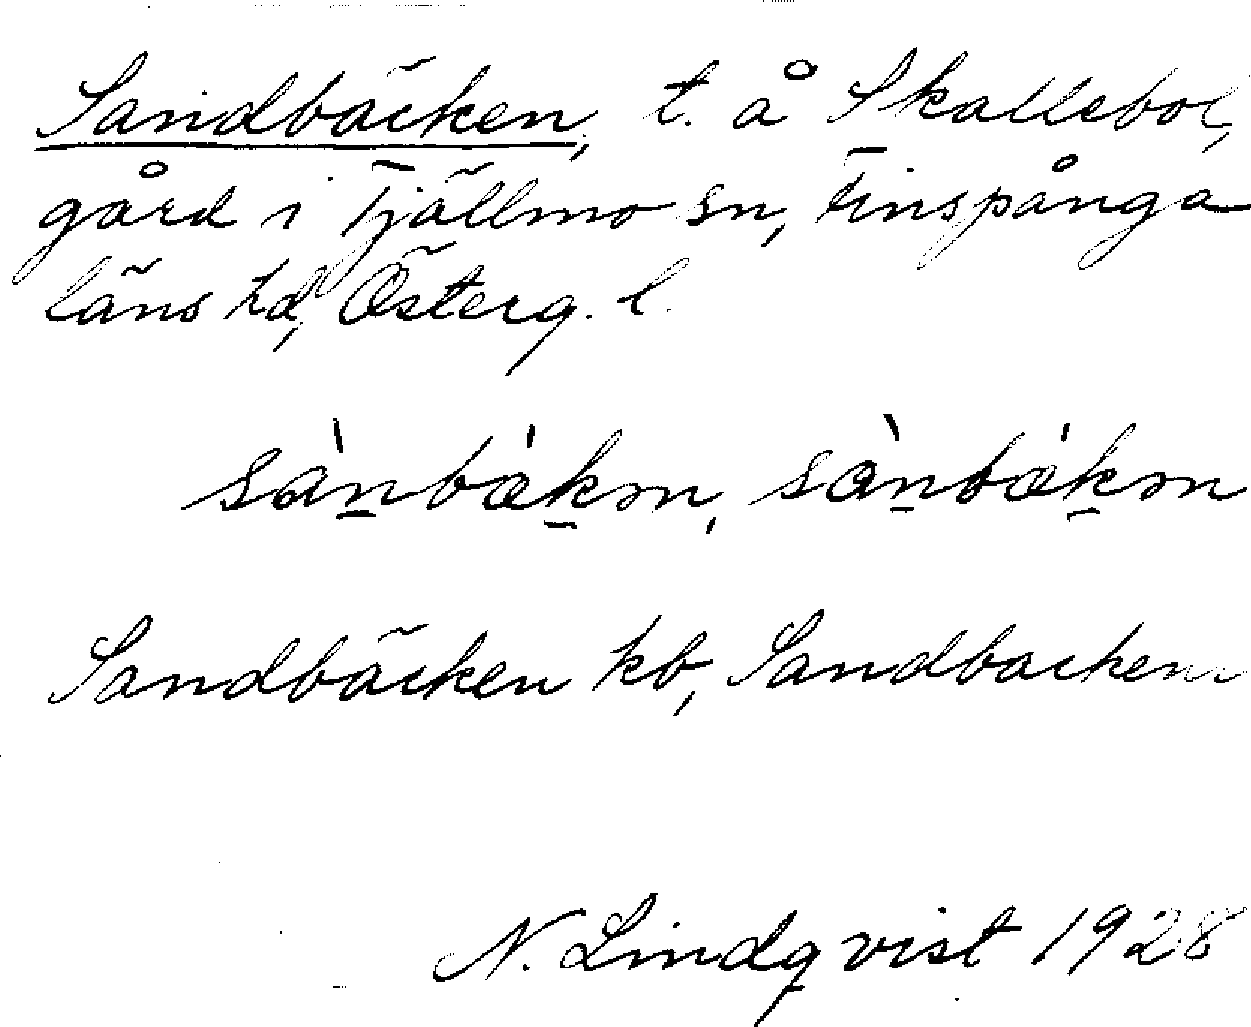 Sandbäcken, t. å Skallebol,
gård i Tjällmo sn, Finspånga
läns hd, Österg. l.
sàn̠bák̠ən, sàn̠bæ̀k̠ən
Sandbäcken kb, Sandbacken
N. Lindqvist 1928